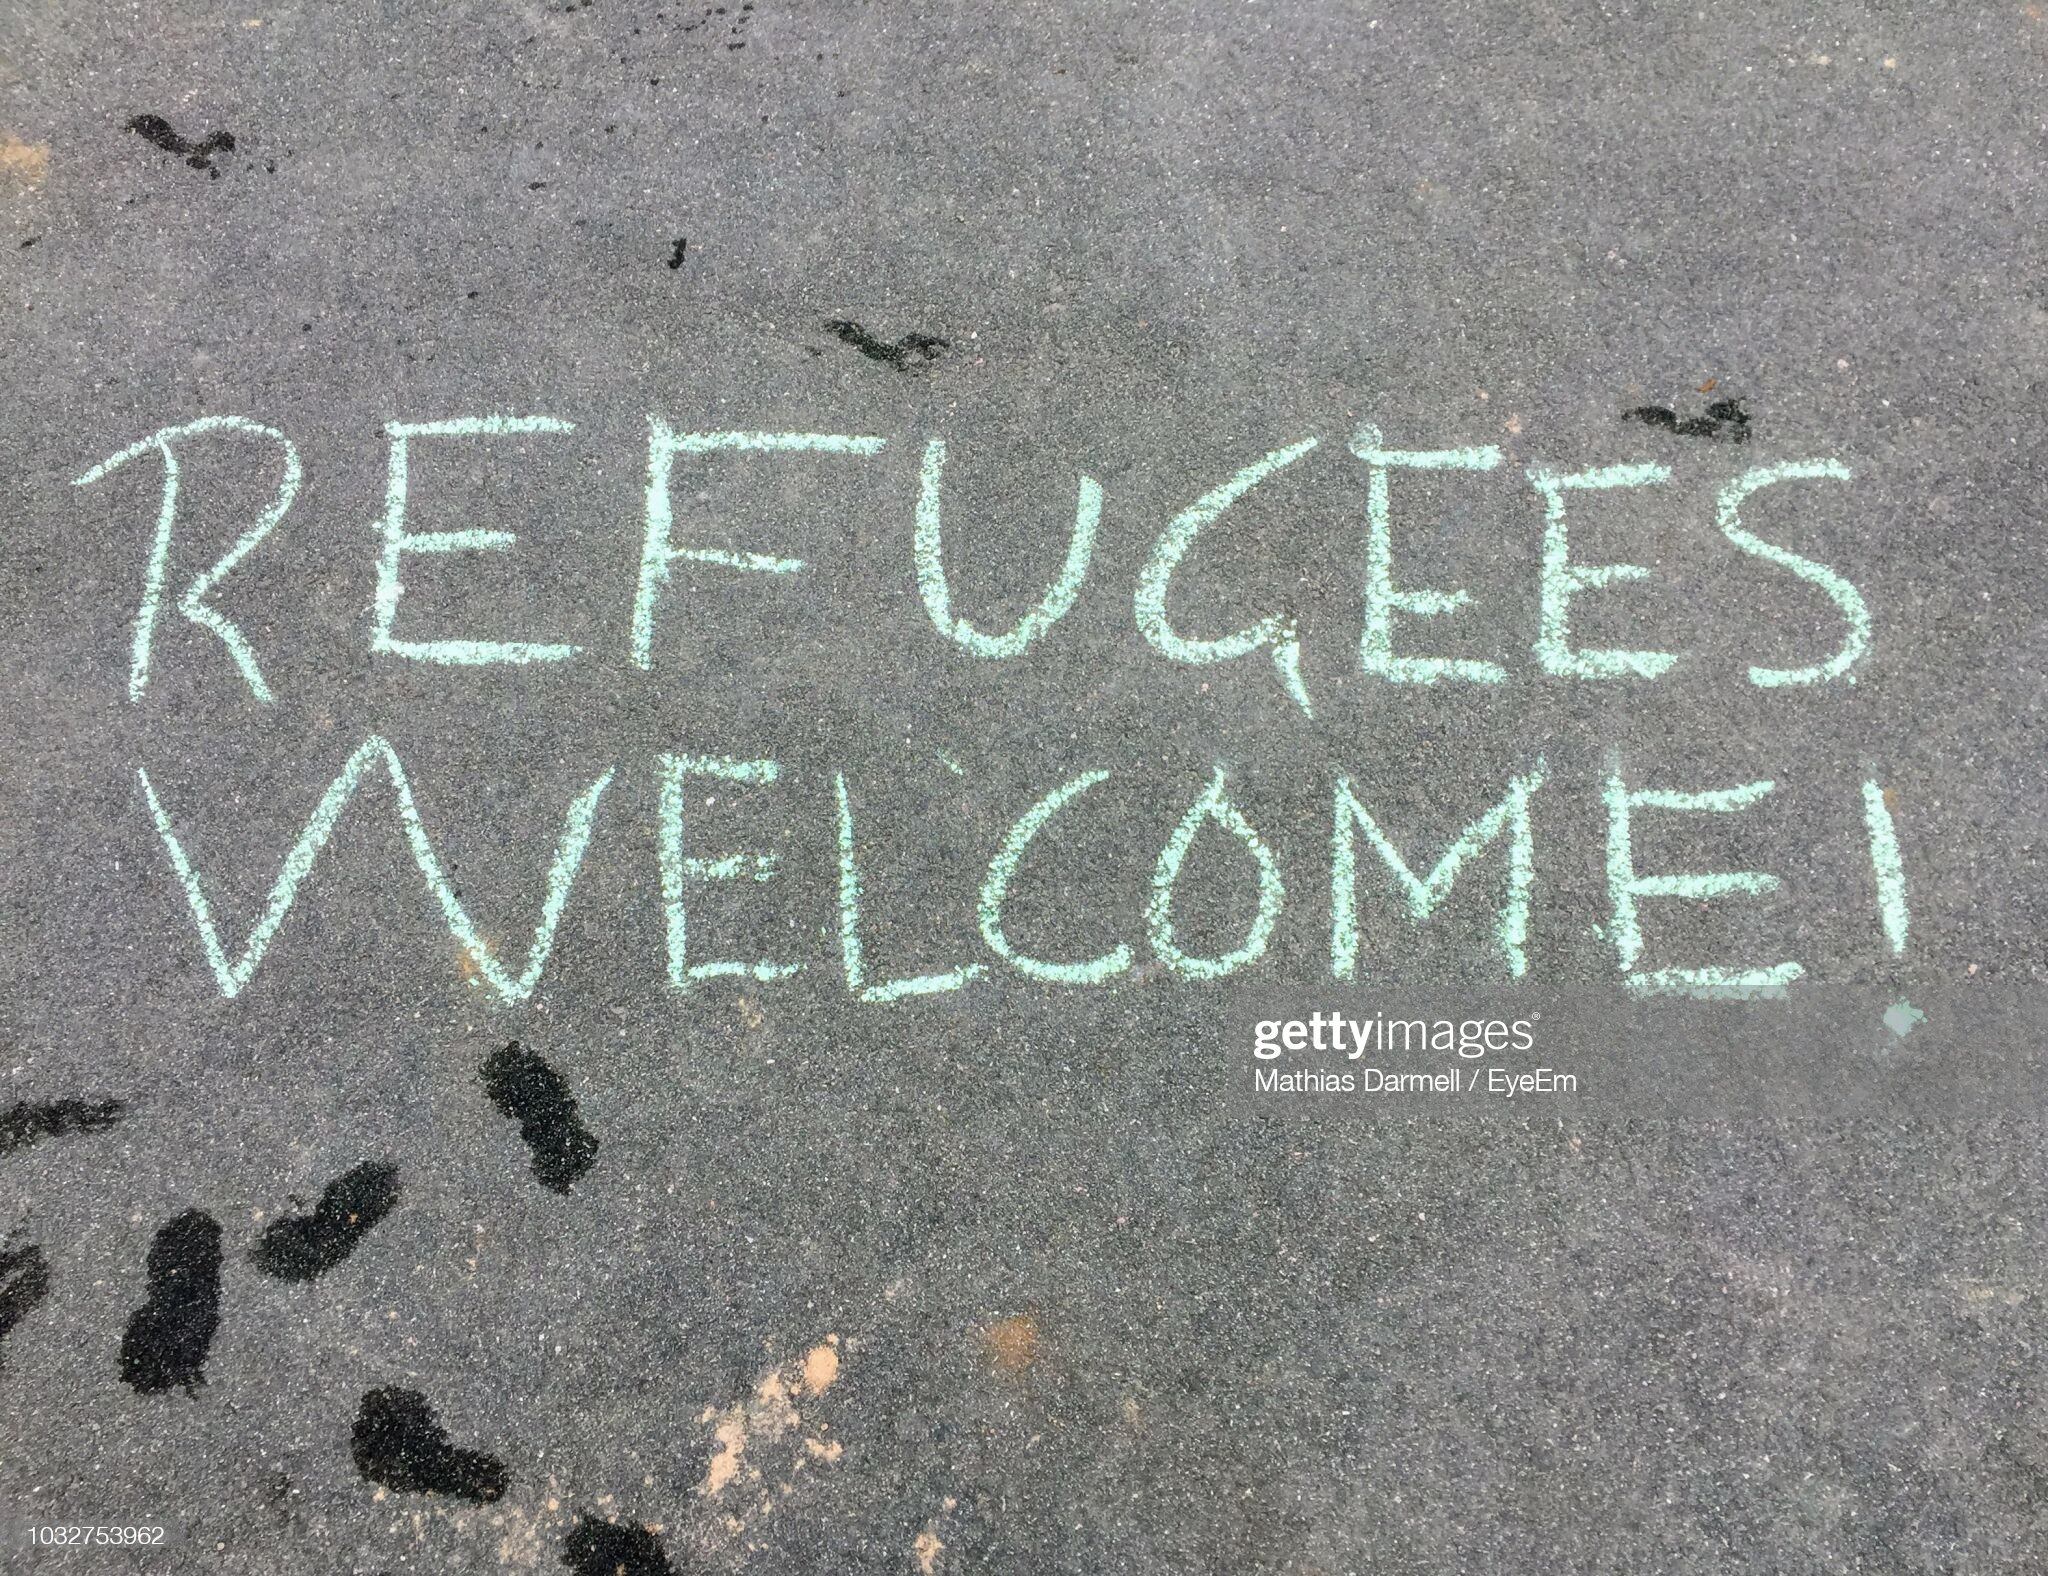 REFUGEES
WELCOME!
gettyimages®
Mathias Darmell / EyeEm
1032753962